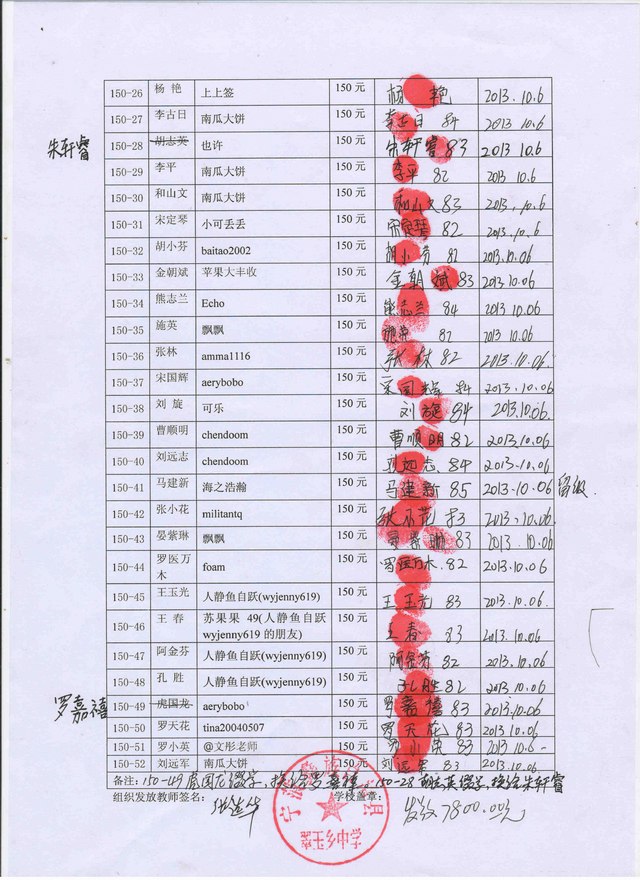 150-26 杨 艳 上上签 150 元 杨 艳 2013.10.6
150-27 李古日 南瓜大饼 150 元 李古日 84 2013.10.6
朱轩睿 150-28 胡志英 也许 150 元 朱轩睿 83 2013 10.6
150-29 李平 南瓜大饼 150 元 李平 82 2013 10.6
150-30 和山文 南瓜大饼 150 元 和山文 83 2013.10.6
150-31 宋定琴 小可丢丢 150 元 宋定琴 82 2013.10.6
150-32 胡小芬 baitao2002 150 元 胡小芬 82 2013.10.06
150-33 金朝斌 苹果大丰收 150 元 金朝斌 83 2013.10.06
150-34 熊志兰 Echo 150 元 熊志兰 84 2013 10.06
150-35 施英 飘飘 150 元 施英 82 2013 10.06
150-36 张林 amma1116 150 元 张林 82 2013.10.06.
150-37 宋国辉 aerybobo 150 元 宋国辉 84 2013.10.06
150-38 刘 旋 可乐 150 元 刘旋 84 2013.10.06.
150-39 曹顺明 chendoom 150 元 曹顺明 82 2013.10.06
150-40 刘远志 chendoom 150 元 刘远志 84 2013.10.06
150-41 马建新 海之浩瀚 150 元 马建新 85 2013.10.06 留级.
150-42 张小花 militantq 150 元 张小花 83 2013.10.06.
150-43 晏紫琳 飘飘 150 元 晏紫琳 83 2013.10.06
150-44 罗医万木 foam 150 元 罗医万木.82 2013.10.06
150-45 王玉光 人静鱼自跃(wyjenny619) 150 元 王玉光 83 2013.10.06.
150-46 王 春 苏果果 49(人静鱼自跃 150 元 王春 83 2013.10.06
wyjenny619 的朋友)
150-47 阿金芬 人静鱼自跃(wyjenny619) 150 元 阿金芬 82 2013.10.06
150-48 孔 胜 人静鱼自跃(wyjenny619) 150 元 孔胜 82 2013.10.06
罗嘉禧 150-49 虎国龙 aerybobo 150 元 罗嘉禧 83 2013.10.06
150-50 罗天花 tina20040507 150 元 罗天花 83 2013.10.06
150-51 罗小英 @文彤老师 150 元 罗小英 83 2013.10.6
150-52 刘远军 南瓜大饼 150 元 刘远军 83 2013.10.06
备注:150-49虎国龙辍学,换给罗嘉禧.150-28胡志英辍学,换给朱轩睿
组织发放教师签名: 学校盖章: 发放7800.00元